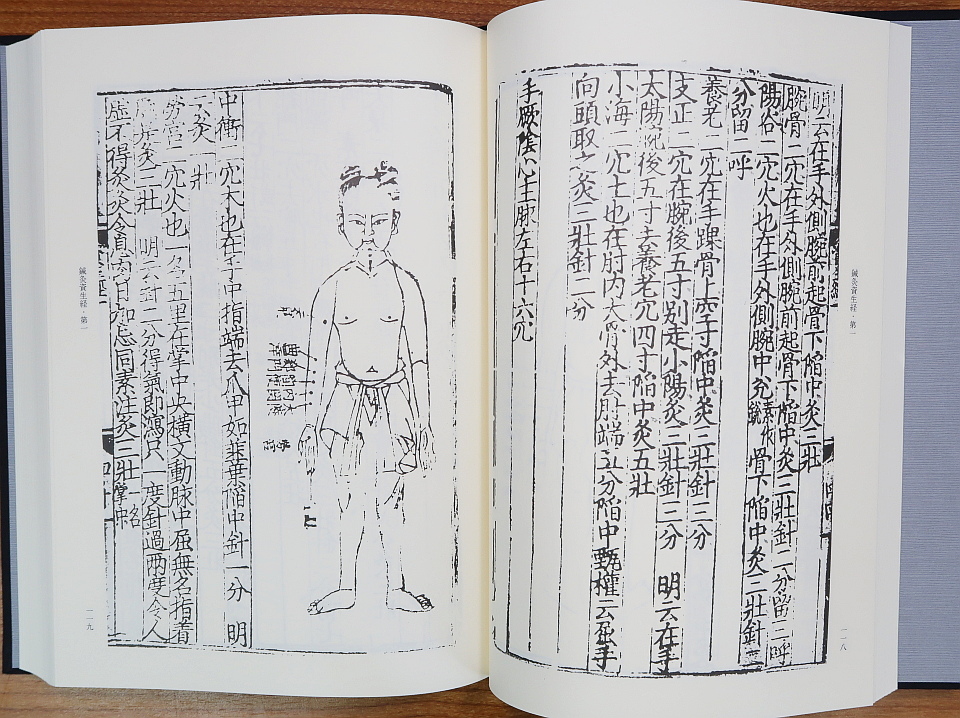 明云在手外側腕前起骨下陥中灸三壯
腕骨二穴在手外側腕前起骨下陥中灸三壯針二分留三呼
陽谷二穴火也在手外側腕中兊骨下陥中灸三壯針二
分留二呼
養老二穴在手踝骨上空一寸陥中灸三壯針三分
支正二穴在腕後五寸別走小陽灸三壯針三分 明云在手
太陽腕後五寸去養老穴四寸陥中灸五壯
小海二穴土也在肘内大骨外去肘端五分陥中甄權云屈手
向頭取之灸三壯針二分
手厥陰心主脉左右十六穴
鍼灸資生経・第一
一一八
中衝二穴木也在手中指端去爪甲如韮葉陥中針一分 明
云灸一壯
勞宮二穴火也一名五里在掌中央横文動脉中屈無名指着
處是灸三壯 明云針二分得氣即瀉只一度針過兩度令人
虚不得灸灸令息肉日加忌同素注灸三壯
鍼灸資生経・第一
一一九